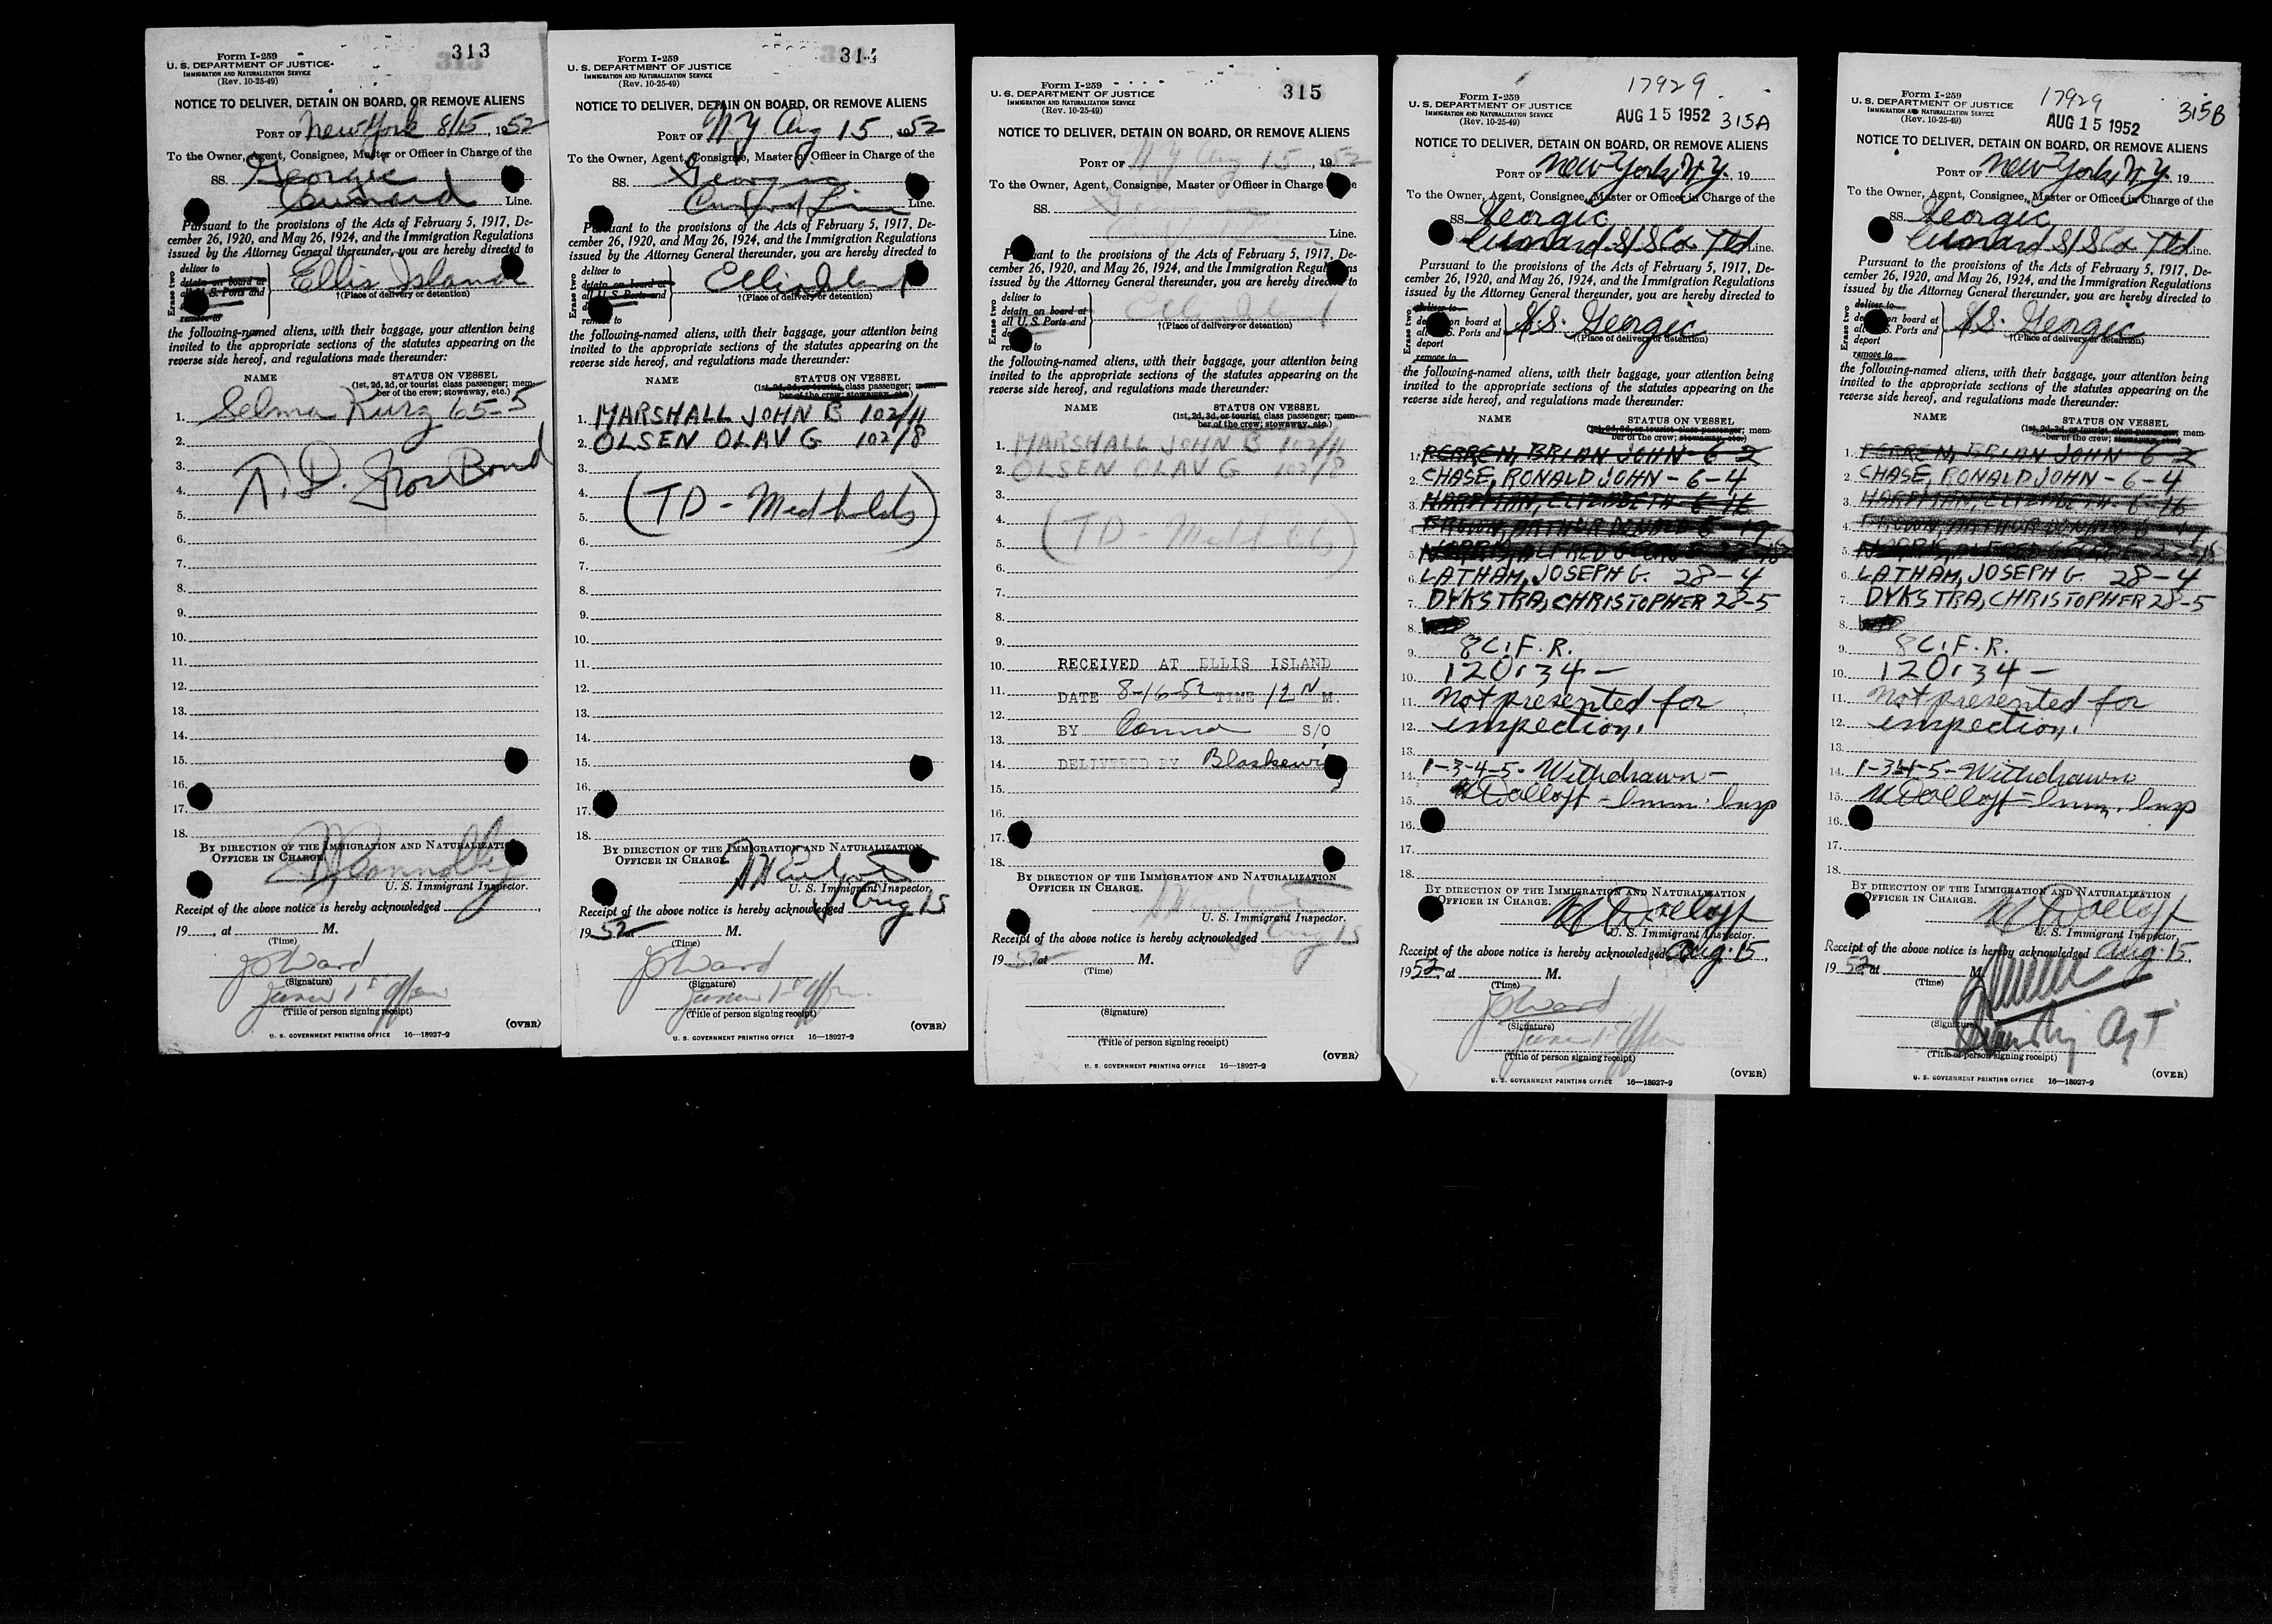 313
Form I-259
U. S. DEPARTMENT OF JUSTICE
IMMIGRATION AND NATURALIZATION SERVICE
(Rev. 10-25-49)
NOTICE TO DELIVER, DETAIN ON BOARD, OR REMOVE ALIENS
PORT OF New York 8/15, 1952
To the Owner, Agent, Consignee, Master or Officer in Charge of the
SS. Georgic
Cunard Line.
Pursuant to the provisions of the Acts of February 5, 1917, De-
cember 26, 1920, and May 26, 1924, and the Immigration Regulations
issued by the Attorney General thereunder, you are hereby directed to
Erase two
deliver to
detain on board at
all U. S. Ports and
remove to
Ellis Island
†(Place of delivery or detention)
the following-named aliens, with their baggage, your attention being
invited to the appropriate sections of the statutes appearing on the
reverse side hereof, and regulations made thereunder:
NAME STATUS ON VESSEL
(1st, 2d, 3d, or tourist class passenger; mem-
ber of the crew; stowaway, etc.)
1. Selma Kurz 65-5
2.
3. T.D. Bond
4.
5.
6.
7.
8.
9.
10.
11.
12.
13.
14.
15.
16.
17.
18.
BY DIRECTION OF THE IMMIGRATION AND NATURALIZATION
OFFICER IN CHARGE.
Connolly
U. S. Immigrant Inspector.
Receipt of the above notice is hereby acknowledged
19 , at M.
(Time)
Ward
(Signature)
(Title of person signing receipt)
(OVER)
U. S. GOVERNMENT PRINTING OFFICE 16—18927-2
314
Form I-259
U. S. DEPARTMENT OF JUSTICE
IMMIGRATION AND NATURALIZATION SERVICE
(Rev. 10-25-49)
NOTICE TO DELIVER, DETAIN ON BOARD, OR REMOVE ALIENS
PORT OF NY Aug 15, 1952
To the Owner, Agent, Consignee, Master or Officer in Charge of the
SS. Georgic
Cunard Line Line.
Pursuant to the provisions of the Acts of February 5, 1917, De-
cember 26, 1920, and May 26, 1924, and the Immigration Regulations
issued by the Attorney General thereunder, you are hereby directed to
Erase two
deliver to
detain on board at
all U. S. Ports and
remove to
Ellis Island
†(Place of delivery or detention)
the following-named aliens, with their baggage, your attention being
invited to the appropriate sections of the statutes appearing on the
reverse side hereof, and regulations made thereunder:
NAME STATUS ON VESSEL
(1st, 2d, 3d, or tourist class passenger; mem-
ber of the crew; stowaway, etc.)
1. MARSHALL JOHN B 102/4
2. OLSEN OLAV G 102/8
3.
4. (TD - Med holds)
5.
6.
7.
8.
9.
10.
11.
12.
13.
14.
15.
16.
17.
18.
BY DIRECTION OF THE IMMIGRATION AND NATURALIZATION
OFFICER IN CHARGE.
U. S. Immigrant Inspector.
Receipt of the above notice is hereby acknowledged Aug 15
1952 at M.
(Time)
Ward
(Signature)
(Title of person signing receipt)
(OVER)
U. S. GOVERNMENT PRINTING OFFICE 16—18927-2
315
Form I-259
U. S. DEPARTMENT OF JUSTICE
IMMIGRATION AND NATURALIZATION SERVICE
(Rev. 10-25-49)
NOTICE TO DELIVER, DETAIN ON BOARD, OR REMOVE ALIENS
PORT OF NY Aug 15, 1952
To the Owner, Agent, Consignee, Master or Officer in Charge of the
SS. Georgic
Line.
Pursuant to the provisions of the Acts of February 5, 1917, De-
cember 26, 1920, and May 26, 1924, and the Immigration Regulations
issued by the Attorney General thereunder, you are hereby directed to
Erase two
deliver to
detain on board at
all U. S. Ports and
remove to
Ellis Island
†(Place of delivery or detention)
the following-named aliens, with their baggage, your attention being
invited to the appropriate sections of the statutes appearing on the
reverse side hereof, and regulations made thereunder:
NAME STATUS ON VESSEL
(1st, 2d, 3d, or tourist class passenger; mem-
ber of the crew; stowaway, etc.)
1. MARSHALL JOHN B 102/4
2. OLSEN OLAV G 102/8
3.
4. (TD - Med holds)
5.
6.
7.
8.
9.
10. RECEIVED AT ELLIS ISLAND
11. DATE 8-16-52 TIME 12 N M.
12.
BY S/O
13.
14. DELIVERED BY
15.
16.
17.
18.
BY DIRECTION OF THE IMMIGRATION AND NATURALIZATION
OFFICER IN CHARGE.
U. S. Immigrant Inspector.
Receipt of the above notice is hereby acknowledged Aug 15
1952, at M.
(Time)
(Signature)
(Title of person signing receipt)
(OVER)
U. S. GOVERNMENT PRINTING OFFICE 16—18927-2
17929
Form I-259
U. S. DEPARTMENT OF JUSTICE
IMMIGRATION AND NATURALIZATION SERVICE
(Rev. 10-25-49)
AUG 15 1952 315A
NOTICE TO DELIVER, DETAIN ON BOARD, OR REMOVE ALIENS
PORT OF New York, N.Y. 19
To the Owner, Agent, Consignee, Master or Officer in Charge of the
SS. Georgic
Cunard S/S Co. Ltd Line.
Pursuant to the provisions of the Acts of February 5, 1917, De-
cember 26, 1920, and May 26, 1924, and the Immigration Regulations
issued by the Attorney General thereunder, you are hereby directed to
Erase two
deliver to
detain on board at
all U. S. Ports and
deport
remove to
S.S. Georgic
†(Place of delivery or detention)
the following-named aliens, with their baggage, your attention being
invited to the appropriate sections of the statutes appearing on the
reverse side hereof, and regulations made thereunder:
NAME STATUS ON VESSEL
(1st, 2d, 3d, or tourist class passenger; mem-
ber of the crew; stowaway, etc.)
1. PERREN, BRIAN JOHN - 6-2
2. CHASE, RONALD JOHN - 6-4
3. HARPMAN, ELIZABETH - 6-16
4. BROWN, ARTHUR DONALD 6-19
5. NORRIS, ALFRED
6. LATHAM, JOSEPH G. 28-4
7. DYKSTRA, CHRISTOPHER 28-5
8.
9. 8 C.F.R.
10. 120.34 —
11. Not presented for
12. inspection.
13.
14. 1-3-4-5- Withdrawn -
15. Imm. Insp
16.
17.
18.
BY DIRECTION OF THE IMMIGRATION AND NATURALIZATION
OFFICER IN CHARGE.
U. S. Immigrant Inspector.
Receipt of the above notice is hereby acknowledged Aug. 15,
1952, at M.
(Time)
Ward
(Signature)
(Title of person signing receipt)
(OVER)
U. S. GOVERNMENT PRINTING OFFICE 16—18927-2
17929
Form I-259
U. S. DEPARTMENT OF JUSTICE
IMMIGRATION AND NATURALIZATION SERVICE
(Rev. 10-25-49)
AUG 15 1952 315B
NOTICE TO DELIVER, DETAIN ON BOARD, OR REMOVE ALIENS
PORT OF New York, N.Y. 19
To the Owner, Agent, Consignee, Master or Officer in Charge of the
SS. Georgic
Cunard S/S Co. Ltd Line.
Pursuant to the provisions of the Acts of February 5, 1917, De-
cember 26, 1920, and May 26, 1924, and the Immigration Regulations
issued by the Attorney General thereunder, you are hereby directed to
Erase two
deliver to
detain on board at
all U. S. Ports and
deport
remove to
S.S. Georgic
†(Place of delivery or detention)
the following-named aliens, with their baggage, your attention being
invited to the appropriate sections of the statutes appearing on the
reverse side hereof, and regulations made thereunder:
NAME STATUS ON VESSEL
(1st, 2d, 3d, or tourist class passenger; mem-
ber of the crew; stowaway, etc.)
1. PERREN, BRIAN JOHN 6-2
2. CHASE, RONALD JOHN - 6-4
3. HARPMAN, ELIZABETH - 6-16
4. BROWN, ARTHUR DONALD
5. NORRIS, ALFRED
6. LATHAM, JOSEPH G. 28-4
7. DYKSTRA, CHRISTOPHER 28-5
8.
9. 8 C.F.R.
10. 120.34 —
11. Not presented for
12. inspection.
13.
14. 1-3-4-5- Withdrawn
15. Imm. Insp
16.
17.
18.
BY DIRECTION OF THE IMMIGRATION AND NATURALIZATION
OFFICER IN CHARGE.
U. S. Immigrant Inspector.
Receipt of the above notice is hereby acknowledged Aug. 15,
1952, at M.
(Time)
(Signature)
(Title of person signing receipt)
(OVER)
U. S. GOVERNMENT PRINTING OFFICE 16—18927-2